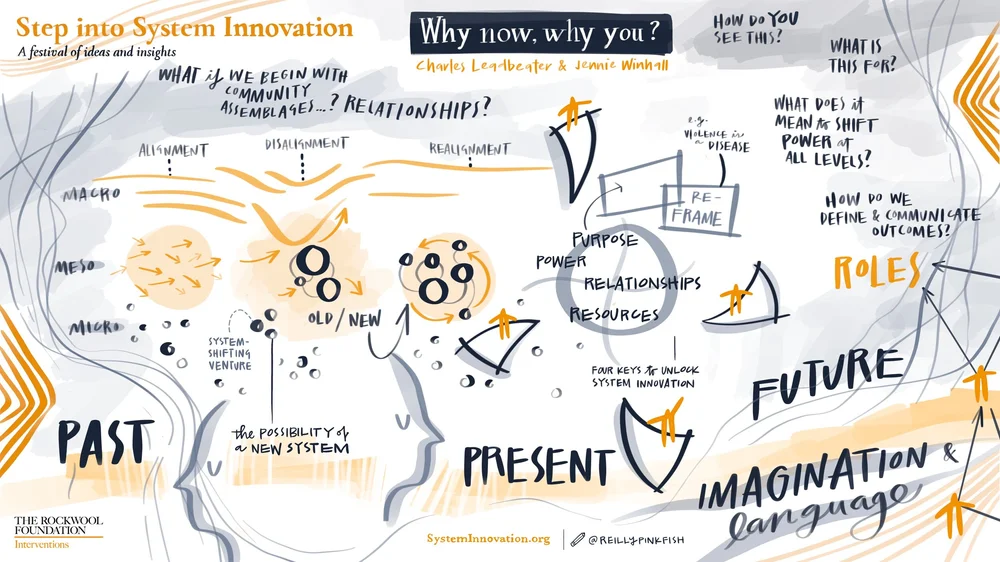 Step into System Innovation
A festival of ideas and insights
Why now, why you?
Charles Leadbeater & Jennie Winhall
WHAT if WE BEGIN WITH
COMMUNITY
ASSEMBLAGES...? RELATIONSHIPS?
HOW DO YOU
SEE THIS?
WHAT IS
THIS FOR?
WHAT DOES it
MEAN to SHIFT
POWER at
ALL LEVELS?
HOW DO WE
DEFINE & COMMUNICATE
OUTCOMES?
ROLES
ALIGNMENT
DISALIGNMENT
REALIGNMENT
MACRO
MESO
MICRO
OLD/NEW
SYSTEM-
SHIFTING
VENTURE
the POSSIBILITY of
a NEW SYSTEM
e.g.
VIOLENCE is
a DISEASE
RE-
FRAME
PURPOSE
POWER
RELATIONSHIPS
RESOURCES
FOUR KEYS to UNLOCK
SYSTEM INNOVATION
PAST
PRESENT
FUTURE
IMAGINATION &
language
THE ROCKWOOL
FOUNDATION
Interventions
SystemInnovation.org
@REILLYPINKFISH